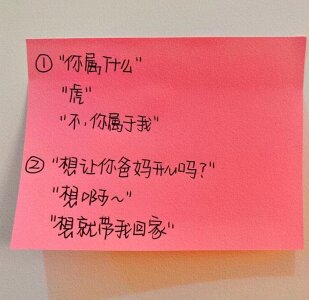 ① "你属什么"
"虎"
"不,你属于我"
② "想让你爸妈开心吗?"
"想啊~"
"想就带我回家"